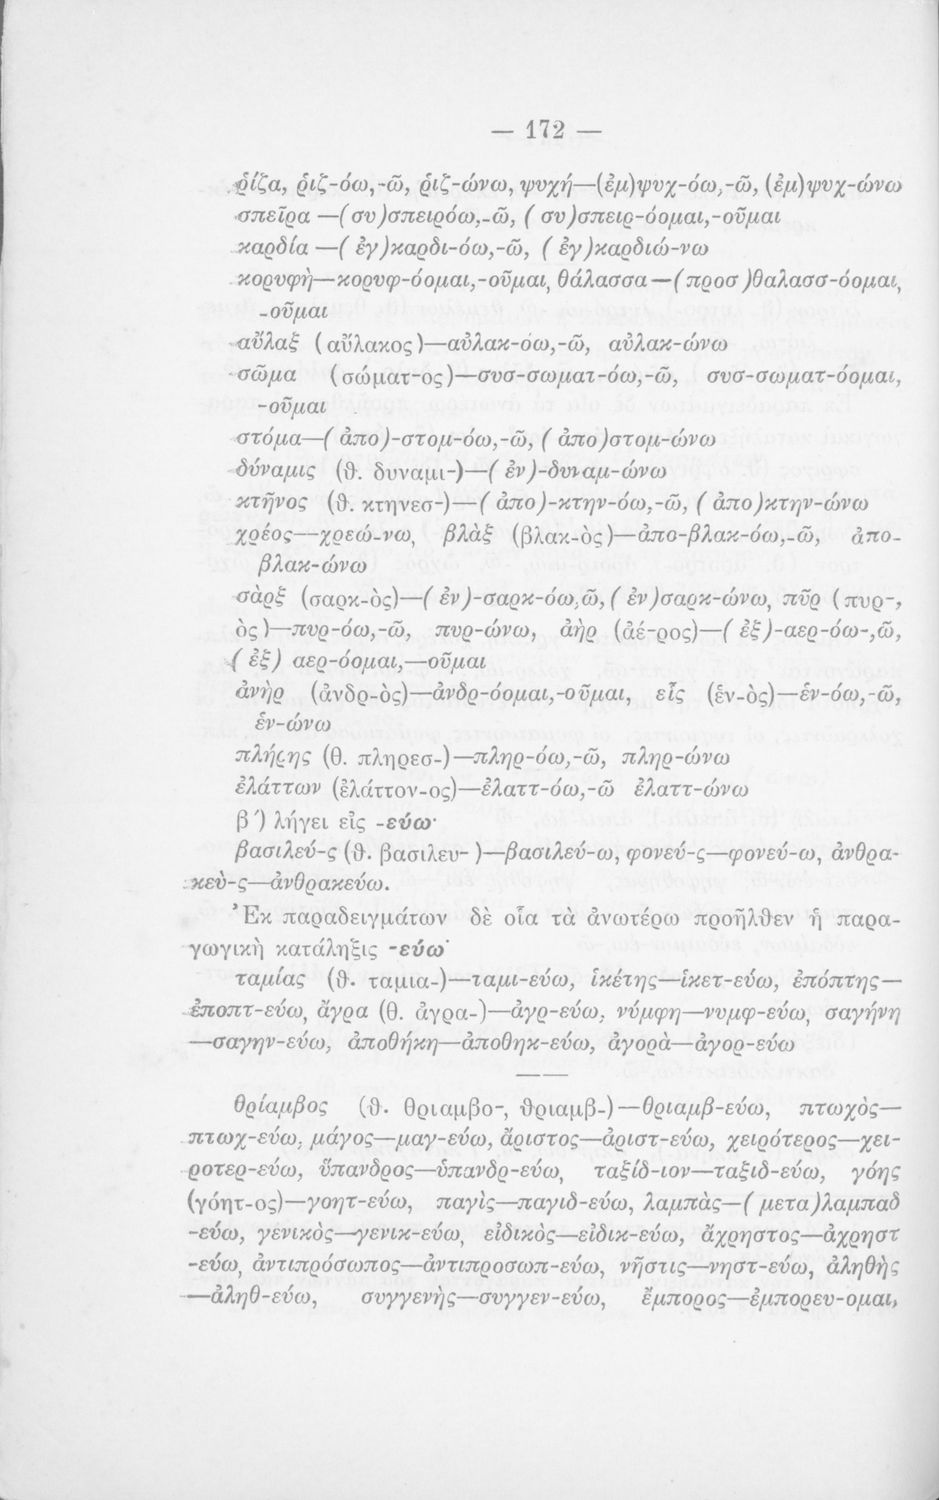 — 172 —
ῥίζα, ῥιζ-όω,-ῶ, ῥιζ-ώνω, ψυχή—(ἐμ)ψυχ-όω,-ῶ, (ἐμ)ψυχ-ώνω
σπεῖρα —(συ)σπειρόω,-ῶ, (συ)σπειρ-όομαι,-οῦμαι
καρδία —(ἐγ)καρδι-όω,-ῶ, (ἐγ)καρδιώ-νω
κορυφὴ—κορυφ-όομαι,-οῦμαι, θάλασσα—(προσ)θαλασσ-όομαι,
-οῦμαι
αὖλαξ (αὔλακος)—αὐλακ-όω,-ῶ, αὐλακ-ώνω
σῶμα (σώματ-ος)—συσ-σωματ-όω,-ῶ, συσ-σωματ-όομαι,
-οῦμαι
στόμα—(ἀπο)-στομ-όω,-ῶ, (ἀπο)στομ-ώνω
δύναμις (θ. δυναμι-)—(ἐν)-δυναμ-ώνω
κτῆνος (θ. κτηνεσ-)—(ἀπο)-κτην-όω,-ῶ, (ἀπο)κτην-ώνω
χρέος—χρεώ-νω, βλὰξ (βλακ-ὸς)—ἀπο-βλακ-όω,-ῶ, ἀπο-
βλακ-ώνω
σὰρξ (σαρκ-ὸς)—(ἐν)-σαρκ-όω,ῶ, (ἐν)σαρκ-ώνω, πῦρ (πυρ-,
ὸς)—πυρ-όω,-ῶ, πυρ-ώνω, ἀὴρ (ἀέ-ρος)—(ἐξ)-αερ-όω-,ῶ,
(ἐξ) αερ-όομαι,—οῦμαι
ἀνὴρ (ἀνδρ-ὸς)—ἀνδρ-όομαι,-οῦμαι, εἷς (ἑν-ὸς)—ἑν-όω,-ῶ,
ἑν-ώνω
πλήρης (θ. πληρεσ-)—πληρ-όω,-ῶ, πληρ-ώνω
ἐλάττων (ἐλάττον-ος)—ἐλαττ-όω,-ῶ ἐλαττ-ώνω
β΄) λήγει εἰς -εύω·
βασιλεύ-ς (θ. βασιλευ- )—βασιλεύ-ω, φονεύ-ς—φονεύ-ω, ἀνθρα-
κεὺ-ς—ἀνθρακεύω.
Ἐκ παραδειγμάτων δὲ οἷα τὰ ἀνωτέρω προῆλθεν ἡ παρα-
γωγικὴ κατάληξις -εύω·
ταμίας (θ. ταμια-)—ταμι-εύω, ἱκέτης—ἱκετ-εύω, ἐπόπτης—
ἐποπτ-εύω, ἄγρα (θ. ἀγρα-)—ἀγρ-εύω, νύμφη—νυμφ-εύω, σαγήνη
—σαγην-εύω, ἀποθήκη—ἀποθηκ-εύω, ἀγορὰ—ἀγορ-εύω
——
θρίαμβος (θ. θριαμβο-, θριαμβ-)—θριαμβ-εύω, πτωχὸς—
πτωχ-εύω, μάγος—μαγ-εύω, ἄριστος—ἀριστ-εύω, χειρότερος—χει-
ροτερ-εύω, ὕπανδρος—ὑπανδρ-εύω, ταξίδ-ιον—ταξιδ-εύω, γόης
(γόητ-ος)—γοητ-εύω, παγὶς—παγιδ-εύω, λαμπὰς—(μετα)λαμπαδ
-εύω, γενικὸς—γενικ-εύω, εἰδικὸς—εἰδικ-εύω, ἄχρηστος—ἀχρηστ
-εύω, ἀντιπρόσωπος—ἀντιπροσωπ-εύω, νῆστις—νηστ-εύω, ἀληθὴς
—ἀληθ-εύω, συγγενὴς—συγγεν-εύω, ἔμπορος—ἐμπορευ-ομαι,